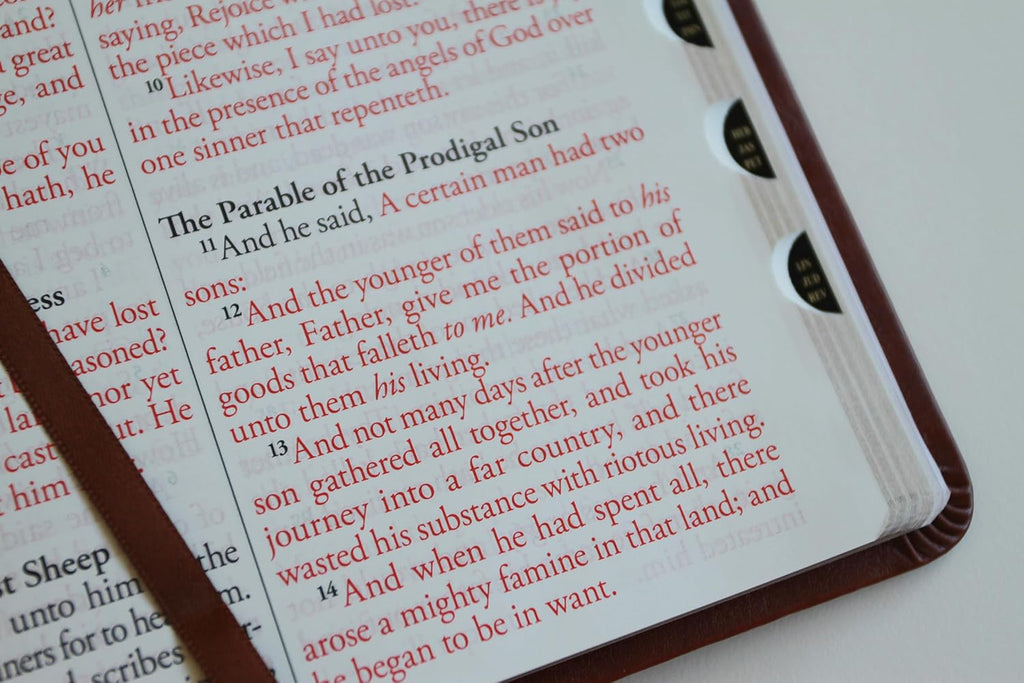 and?
great
ge, and
e of you
hath, he
ess
have lost
asoned?
nor yet
ut. He
cast
him
st Sheep
the
unto him
m.
ners for to he
scribes
her
saying, Rejoice
the piece which I had lost.
10 Likewise, I say unto you, there is
in the presence of the angels of God over
one sinner that repenteth.
The Parable of the Prodigal Son
11 And he said, A certain man had two
sons:
12 And the younger of them said to his
father, Father, give me the portion of
goods that falleth to me. And he divided
unto them his living.
13 And not many days after the younger
son gathered all together, and took his
journey into a far country, and there
wasted his substance with riotous living.
14 And when he had spent all, there
arose a mighty famine in that land; and
he began to be in want.
HEB
JAS
PET
LIN
JUD
REV